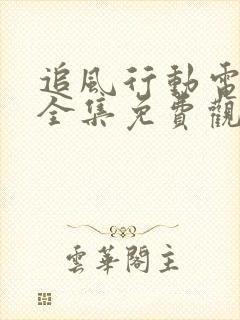 追風行動電
全集免費觀
雲華閣主